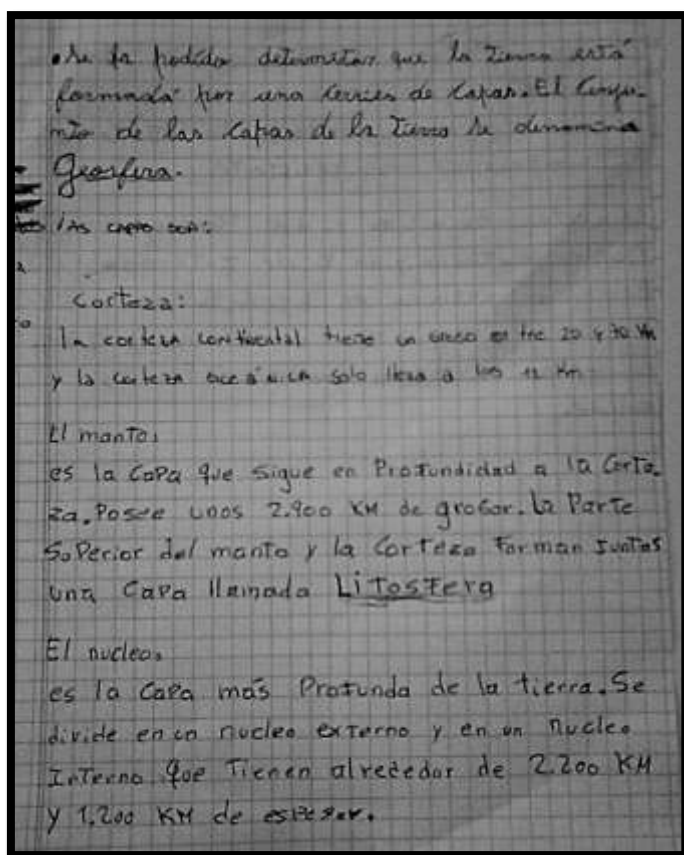 • Se ha podido determinar que la Tierra está
formada por una serries de capas. El Conju-
nto de las capas de la Tierra se denomina
Geosfera.
las capas son:
Corteza:
la corteza continental tiene un groso entre 20 y 70 Km
y la corteza oceánica solo llega a los 12 Km
El manto:
es la Capa que sigue en Profundidad a la Corte.
za. Posee unos 2.900 KM de grosor. la Parte
Superior del manto y la Corteza Forman Juntas
una Capa llamada Litosfera
El nucleo:
es la Capa más Profunda de la tierra. Se
divide en un nucleo externo y en un nucleo
Interno que Tienen alrededor de 2.200 KM
y 1.200 KM de espesor.